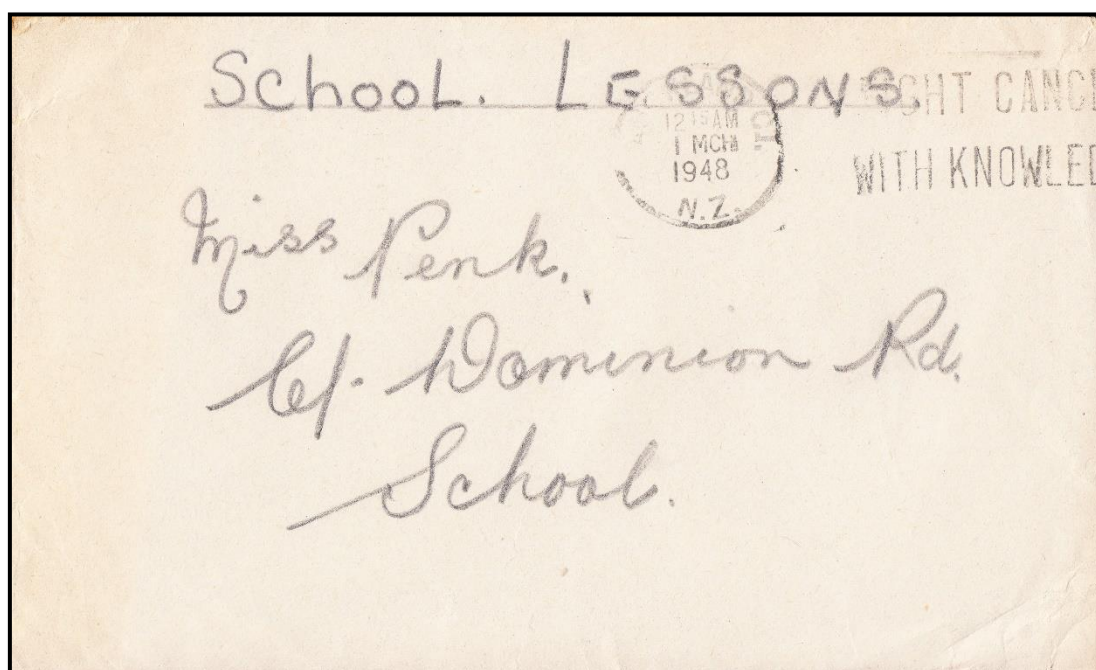 School. LESSONS.
12 15 AM
1 MCH
1948
N.Z.
FIGHT CANCE
WITH KNOWLED
Miss Penk.
C/- Dominion Rd.
School.